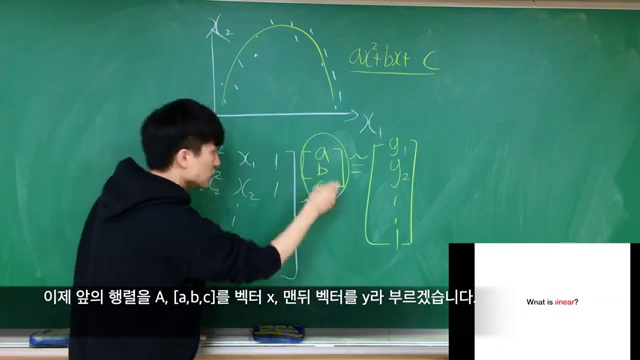 x₂
ax²+bx+ C
x₁
x₁ 1
x₂ 1
a
b
c
≃
y₁
y₂
이제 앞의 행렬을 A, [a,b,c]를 벡터 x, 맨뒤 벡터를 y라 부르겠습니다.
What is linear?